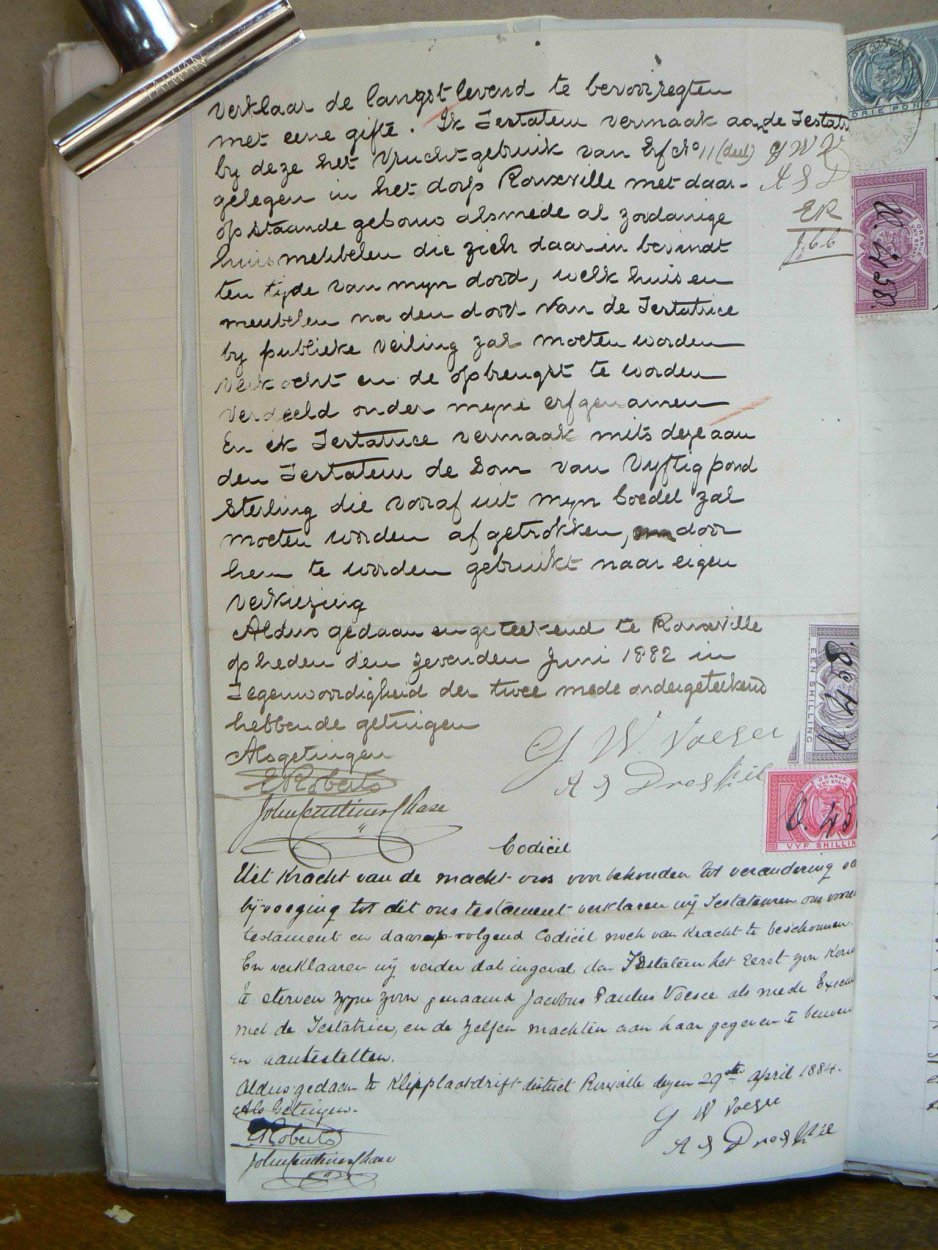 verklaar de langstlevend te bevoorregten
met eene gifte. Ik Testateur vermaak aan de Testat
by deze het Vruchtgebruik van Erf No 11 (deel)
gelegen in het dorp Rouxville met daar-
opstaande gebouw alsmede al zoodanige
huismeubelen die zich daarin bevindt
ten tyde van myn dood, welk huis en
meubelen na den dood van de Testatrice
by publieke veiling zal moeten worden
verkocht en de opbrengst te worden
verdeeld onder myne erfgenamen
En ik Testatrice vermaak mits deze aan
den Testateur de Som van Vyftig pond
Sterling die vooraf uit myn Boedel zal
moeten worden afgetrokken, door
hem te worden gebruikt naar eigen
verkiezing
Aldus gedaan en geteekend te Rouxville
op heden den zevenden Juni 1882 in
Tegenwoordigheid der twee mede ondergeteekend
hebbende getuigen
Als getuigen
G. W. Voesee
A S Droskie
E Roberts
John Chase
Codiciel
Uit Kracht van de macht ons voorbehouden tot verandering
bijvoeging tot dit ons testament verklaren wij Testateuren ons
testament en daarop volgend Codiciel noch van Kracht te beschouwen.
En verklaaren wij verder dat ingeval den Testateur het Eerst
te sterven zyne zoon genaamd Jacobus Paulus Voesee als mede Execu
met de Testatrice, en de zelfen machten aan haar gegeven te
en aantestellen.
Aldus gedaan te Klipplaatdrift district Rouxville dezen 29ste April 1884.
Als Getuigen.
G W Voesee
A S Droskie
E Roberts
John Chase
G W V
A S D
ER
J.C.C
DRIE POND
ORANGE
EEN SHILLING
ORANGE
VYF SHILLIN